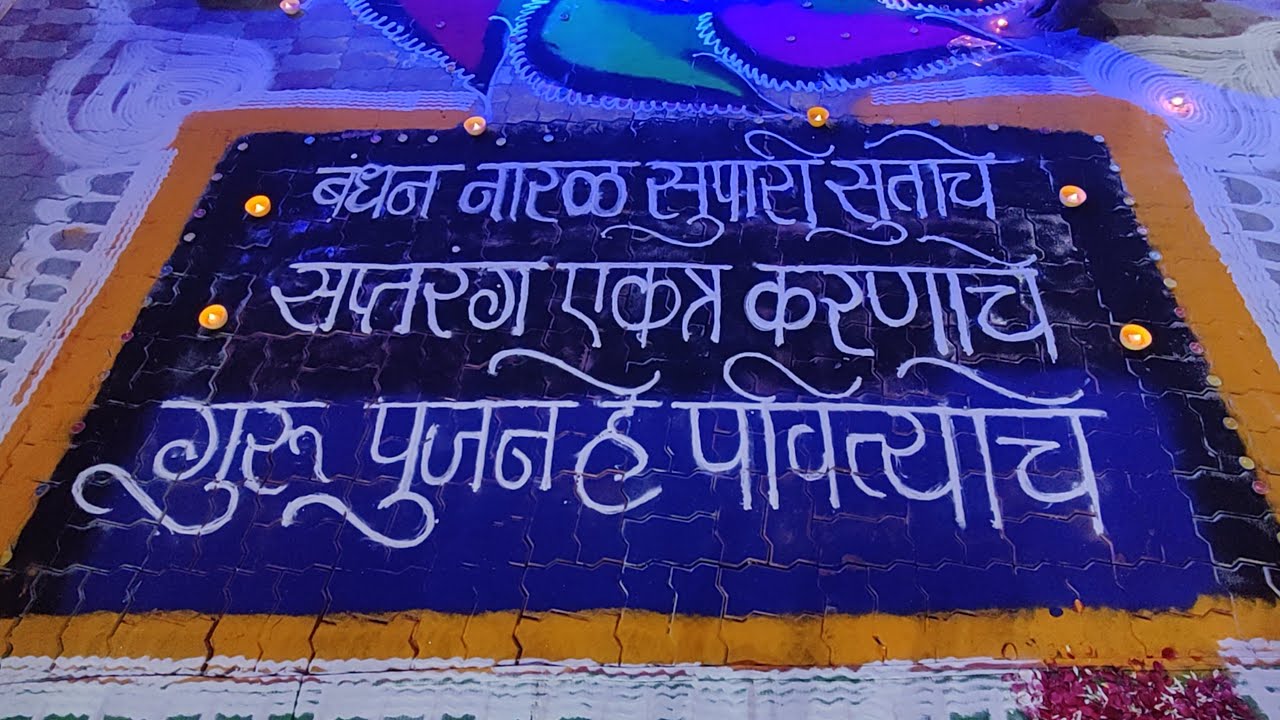 बंधन नारळ सुपारी सुताचे
सप्तरंग एकत्र करणाचे
गुरू पुजन हे पवित्याचे